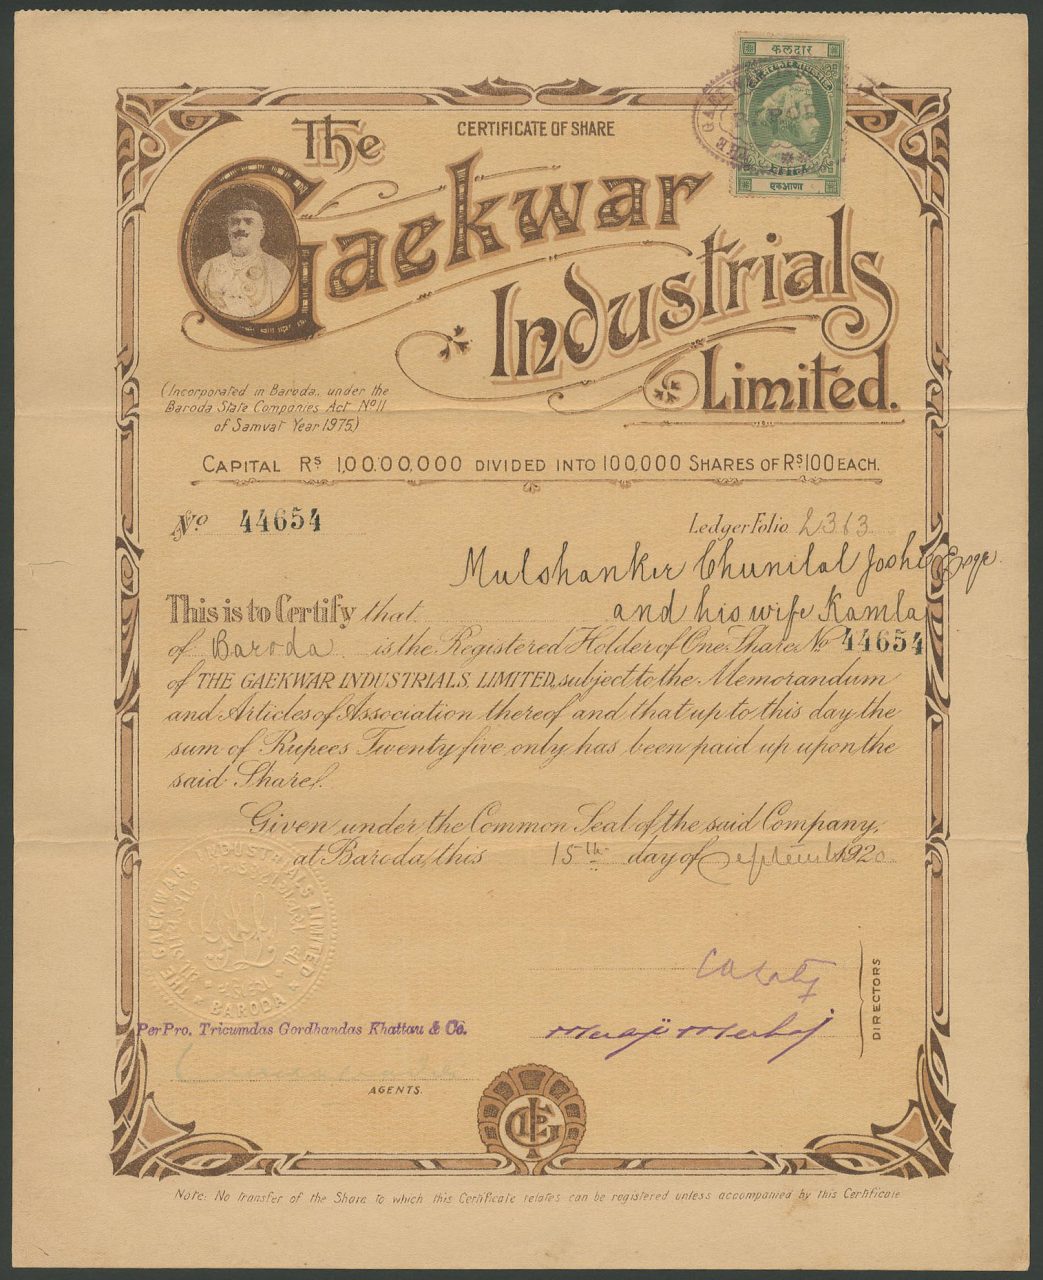 कलदार
एकआणा
CERTIFICATE OF SHARE
The
Gaekwar
Industrials
Limited.
(Incorporated in Baroda, under the
Baroda State Companies Act Nº 11
of Samvat Year 1975.)
CAPITAL RS 1,00,00,000 DIVIDED INTO 100,000 SHARES OF RS 100 EACH.
Nº 44654
Ledger Folio 2363
Mulshanker Chunilal Joshi Esqr.
This is to Certify that and his wife Kamla
of Baroda is the Registered Holder of One Share Nº 44654
of THE GAEKWAR INDUSTRIALS, LIMITED, subject to the Memorandum
and Articles of Association thereof and that up to this day the
sum of Rupees Twenty five only has been paid up upon the
said Share/.
Given under the Common Seal of the said Company,
at Baroda, this 15th day of September 1920.
THE GAEKWAR INDUSTRIALS LIMITED
BARODA
DIRECTORS
Per Pro. Tricumdas Gordhandas Khattau & Co.
AGENTS.
Note: No transfer of the Share to which this Certificate relates can be registered unless accompanied by this Certificate